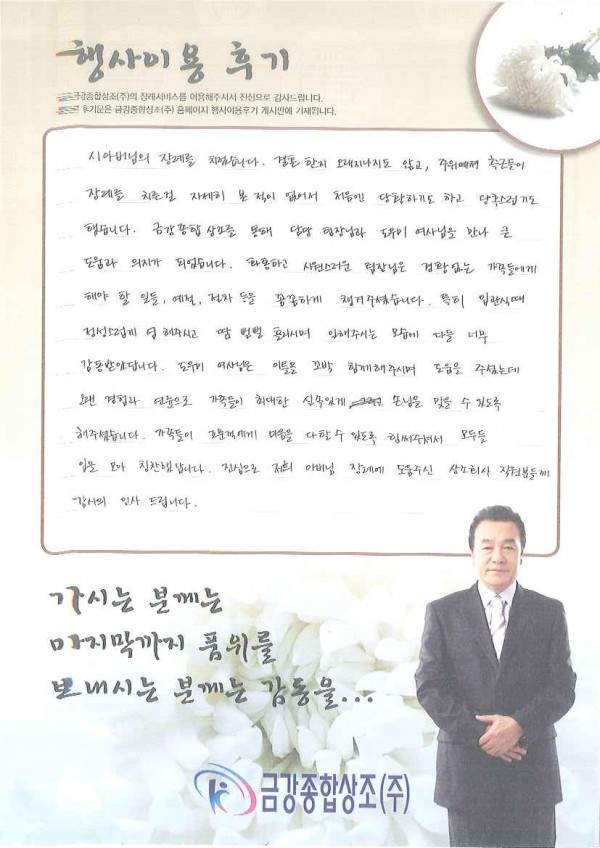 행사이용 후기
금강종합상조(주)의 장례서비스를 이용해주셔서 진심으로 감사드립니다.
후기문은 금강종합상조(주) 홈페이지 행사이용후기 게시판에 기재됩니다.
시아버님의 장례를 치렀습니다. 결혼한지 오래지나지도 않고, 주위에서 측근들이
장례를 치른걸 자세히 본 적이 없어서 처음엔 당황하기도 하고 당혹스럽기도
했습니다. 금강종합 상조를 통해 담당 팀장님과 도우미 여사님을 만나 큰
도움과 의지가 되었습니다. 시원스러운 팀장님은 경황없는 가족들에게
해야 할 일들, 예절, 절차 등을 꼼꼼하게 챙겨주셨습니다. 특히 입관식때
정성스럽게 염 해주시고 땀 뻘뻘 흘리시며 일해주시는 모습에 다들 너무
감동받았답니다. 도우미 여사님은 이틀을 꼬박 함께해주시며 도움을 주셨는데
오랜 경험과 연륜으로 가족들이 최대한 실속있게 손님을 맞을 수 있도록
해주셨습니다. 가족들이 조문객에게 마음을 다할 수 있도록 힘써주셔서 모두들
입을 모아 칭찬했답니다. 진심으로 저희 아버님 장례에 도움주신 상조회사 직원분들께
감사의 인사 드립니다.
가시는 분께는
마지막까지 품위를
보내시는 분께는 감동을...
금강종합상조(주)